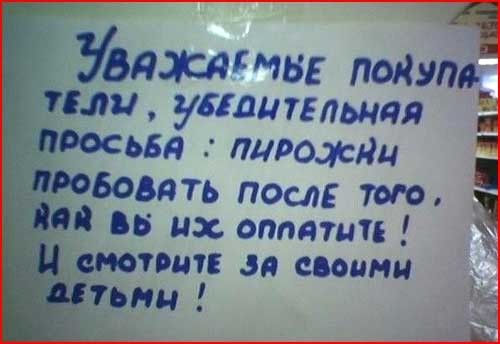 УВАЖАЕМЫЕ ПОКУПА-
ТЕЛИ, УБЕДИТЕЛЬНАЯ
ПРОСЬБА: ПИРОЖКИ
ПРОБОВАТЬ ПОСЛЕ ТОГО,
КАК ВЫ ИХ ОПЛАТИТЕ!
И СМОТРИТЕ ЗА СВОИМИ
ДЕТЬМИ!